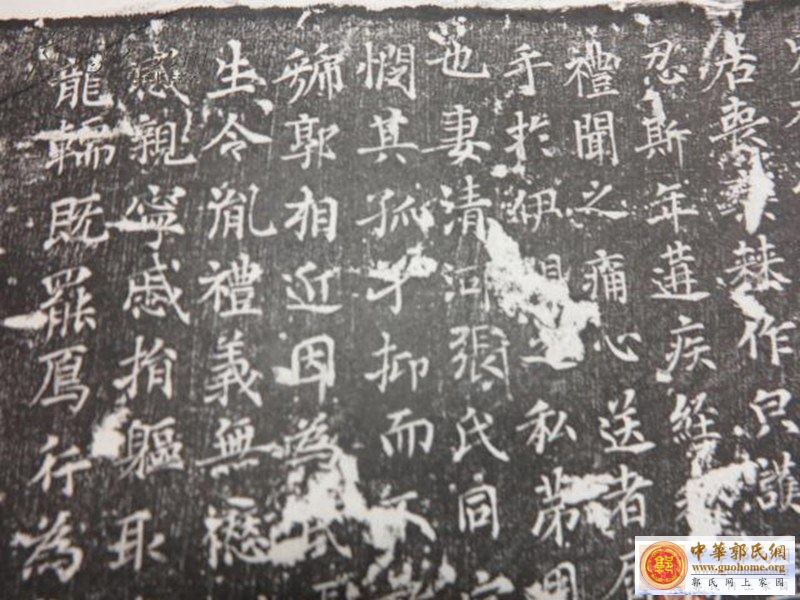 居喪 棘作只護
忍斯年遘疾經
禮聞之痛心送者
手於伊 之私第
也妻清河張氏同
憫其孤才抑而
號郭相近因為氏
生令胤禮義無愆
感親寧戚捐軀取
龍轜既罷鴈行為
中華郭氏網
www.guohome.org
郭氏网上家园